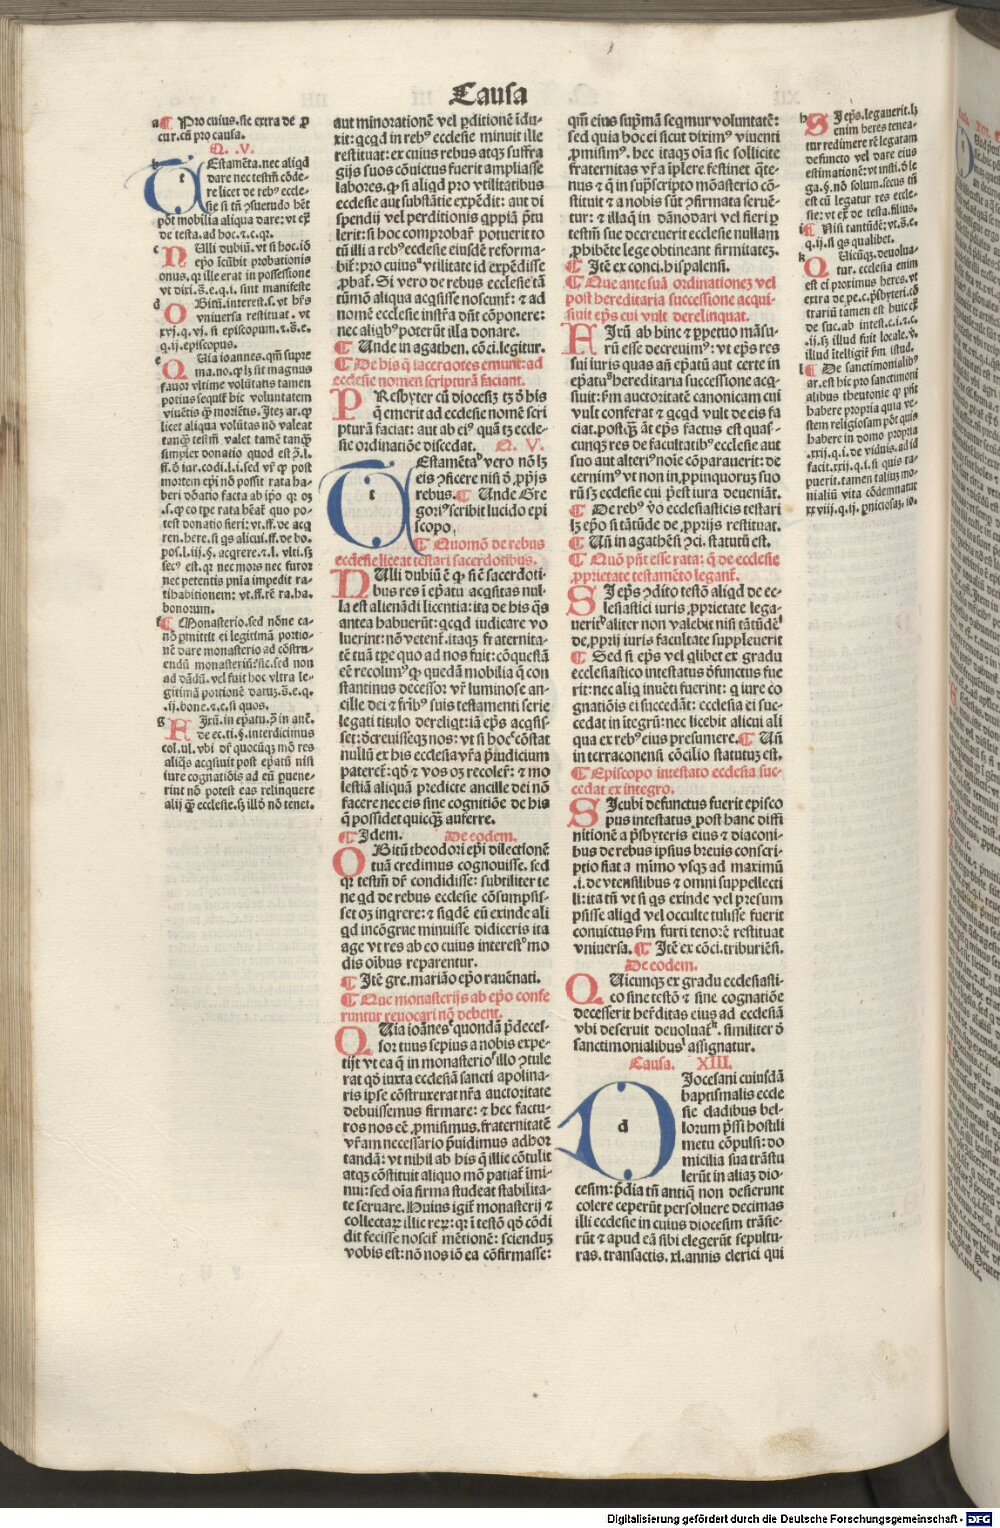 Causa
a ¶ Pro cuius. sic extra de p̱
cur. cū pro causa.
Q. .V.
b TEstamēta. nec aliqd
dare nec testm̄ cōde-
re licet de rebꝰ eccle-
sie si tn̄ ꝯsuetudo hēt
pōt mobilia aliqua dare: vt ex̄
de testa. ad hoc. ⁊.c.qꝛ.
c NUlli dubiū. vt si hoc. iō
ep̄o īcūbit probationis
onus. qꝛ ille erat in possessione
vt dixi. s̄.e.q.i. sunt manifeste
d OBitū. interest. s. vt hr̄s
vniuersa restituat. vt
xvj.q.vj. si episcopum. ⁊.s̄.e.
q.ij. episcopus.
e QUia ioannes. qm̄ supre
ma. no. ꝙ lꝫ sit magnus
fauor vltime volūtatis tamen
potius sequit̄ hic voluntatem
viuētis q̄ moriētis. Itez ar. ꝙ
licet aliqua volūtas nō valeat
tanq̄ testm̄ valet tamē tanq̄
simplex donatio quod est ꝯ.l.
ff. d̄ iur. codi.l.i. sed vr̄ ꝙ post
mortem ep̄i nō possit rata ha-
beri dōatio facta ab ip̄o qꝛ oꝫ
.s. ꝙ eo tp̄e rata hēat̄ quo po-
test donatio fieri: vt.ff. de acq
ren. here. si qs alicui.ff. de bo.
pos.l.iij.§. acqrere.⁊.l. vlti. sꝫ
secꝰ est. qꝛ nec mors nec furor
nec petentis pnīa impedit ra-
tihabitionem: vt.ff. rē ra. ha.
bonorum.
f ¶ Monasterio. sed nōne ca-
nō pmittit ei legitimā portio-
nē dare monasterio ad cōstru-
endū monasteriū: sic. sed non
ad dādū. vel fuit hoc vltra le-
gitimā portionē datuꝫ. s̄.e.q.
.ij. bone. ⁊.c. si quos.
g FIxū. in ep̄atu. ꝯ in autē.
de ec. ti.§. interdicimus
col. vl. vbi dr̄ quocūqꝫ mō res
aliq̄s acqsiuit post ep̄atū nisi
iure cognatiōis ad eū puene-
rint nō potest eas relinquere
alij q̄ ecclesie. sꝫ illō nō tenet.
aut minorationē vel pditionē īdu-
xit: qcqd in rebꝰ ecclesie minuit ille
restituat: ex cuius rebus atqꝫ suffra
gijs suos cōuictus fuerit ampliasse
labores. ꝙ si aliqd pro vtilitatibus
ecclesie aut substātie expēdit: aut di
spendij vel perditionis qppiā ptu
lerit: si hoc comprobar̄ potuerit to
tū illi a rebꝰ ecclesie eiusdē reforma-
bit̄: pro cuiusꝰ vtilitate id expēdisse
pbat̄. Si vero de rebus ecclesie tā
tūmō aliqua acqsisse noscunt̄: ⁊ ad
nomē ecclesie instr̄a dn̄t cōponere:
nec aliqbꝰ poterūt illa donare.
¶ Unde in agathen. cōci. legitur.
¶ De his q̄ sacerdotes emunt: ad
ecclesie nomen scripturā faciant.
PResbyter cū diocesiꝫ tꝫ d̄ his
q̄ emerit ad ecclesie nomē scri
pturā faciat: aut ab eiꝰ quā tꝫ eccle-
sie ordinatiōe discedat. Q. V.
TEstamētaᵇ vero nō lꝫ
eis ꝯficere nisi d̄ ꝓpijs
rebus. ¶ Unde Gre
goriꝰ scribit lucido epi
scopo.
¶ Quomō de rebus
ecclesie liceat testari sacerdotibus.
NUlli dubiū ē ꝙ sic̄ sacerdoti-
bus res ī ep̄atu acqsitas nul-
la est alienādi licentia: ita de his q̄s
antea habuerūt: qcqd iudicare vo
luerint: nō vetent̄. itaqꝫ fraternita-
tē tuā tp̄e quo ad nos fuit: cōquestā
eē recolimꝰ ꝙ quedā mobilia q̄ con
stantinus decessor vr̄ luminose an-
cille dei ⁊ fr̄ibꝰ suis testamenti serie
legati titulo dereliqt: iā ep̄s acqsis-
set: dcreuisseqꝫ nos: vt si hocᶜ cōstat
nullū ex his ecclesia vr̄a piudicium
pateret̄: qd̄ ⁊ vos oꝫ recoler̄: ⁊ mo
lestiā aliquā predicte ancille dei nō
facere nec eis sine cognitiōe de his
q̄ possidet quicq̄ auferre.
¶ Idem. De eodem.
OBitū theodori ep̄i dilectionē
tuā credimus cognouisse. sed
qꝛ testm̄ dr̄ condidisse: subtiliter te
ne qd de rebus ecclesie cōsumpsis-
set oꝫ inqrere: ⁊ siqdē eū exinde ali
qd incōgrue minuisse didiceris ita
age vt res ab eo cuius interestᵈ mo
dis oībus reparentur.
¶ Itē gre. mariāo ep̄o rauēnati.
¶ Que monasterijs ab ep̄o confe
runtur reuocari nō debent.
QUia ioānesᵉ quondā pdeces-
sor tuus sepius a nobis expe-
tijt vt ea q̄ in monasterioᶠ illo ꝯtule
rat qd̄ iuxta ecclesiā sancti apolina-
ris ipse cōstruxerat nr̄a auctoritate
debuissemus firmare: ⁊ hec factu-
ros nos eē ꝓmisimus. fraternitatē
vr̄am necessario puidimus adhor
tandā: vt nihil ab his q̄ illic cōtulit
atqꝫ cōstituit aliquo mō patiat̄ īmi-
nui: sed oīa firma studeat stabilita-
te seruare. Huius igit̄ monasterij ⁊
collectaꝝ illic reꝝ: qꝛ ī testō qd̄ cōdi
dit fecisse noscit̄ mētionē: sciendum
vobis est: nō nos iō ea cōfirmasse:
qm̄ eius supmā seqmur voluntatē:
sed quia hoc ei sicut diximꝰ viuenti
ꝓmisimꝰ. hec itaqꝫ oīa sic sollicite
fraternitas vr̄a īplere festinet q̄te-
nus ⁊ q̄ in supscripto mōasterio cō-
stituit ⁊ a nobis sūt ꝯfirmata seruē-
tur: ⁊ illa q̄ in dānodari vel fieri p
testm̄ sue decreuerit ecclesie nullam
ꝓhibēte lege obtineant firmitateꝫ.
¶ Itē ex conci. hispalensi.
¶ Que ante suā ordinationeꝫ vel
post hereditaria successione acqui-
siuit ep̄s cui vult derelinquat.
FIxū ab hinc ⁊ ꝑpetuo māsu-
rū esse decreuimꝰ: vt ep̄s res
sui iuris quas an̄ ep̄atū aut certe in
ep̄atuᵍ hereditaria successione acq-
siuit: fm̄ auctoritatē canonicam cui
vult conferat ⁊ qcqd vult de eis fa
ciat. postq̄ āt ep̄s factus est quas-
cunqꝫ res de facultatibꝰ ecclesie aut
suo aut alteriꝰ noīe cōparauerit: de
cernimꝰ vt non in ꝓpinquoꝝ suo
rū sꝫ ecclesie cui pest iura deueniāt.
¶ De rebꝰ v̄o ecclesiasticis testari
lꝫ ep̄o si tātūdē de ꝓprijs restituat.
¶ Un̄ in agathēsi ꝯci. statutū est.
¶ Quō pn̄t esse rata: q̄ de ecclesie
ꝓprietate testamēto legant̄.
SI ep̄s ꝯdito testō aliqd de ec-
clesiastici iuris ꝓprietate lega-
ueritʰ aliter non valebit nisi tātūdēⁱ
de ꝓprij iuris facultate suppleuerit
¶ Sed si ep̄s vel qlibet ex gradu
ecclesiastico intestatus dfunctus fue
rit: nec aliq inuēti fuerint: q iure co
gnatiōis ei succedāt: ecclesia ei suc-
cedat in itegrū: nec licebit alicui ali
qua ex rebꝰ eius presumere. ¶ Un̄
in terraconensi cōcilio statutuꝫ est.
¶ Episcopo intestato ecclesia suc-
cedat ex integro.
SIcubi defunctus fuerit episco
pus intestatus post hanc diffi
nitionē a p̄sbyteris eius ⁊ diaconi-
bus de rebus ipsius breuis conscri-
ptio fiat a minimo vsqꝫ ad maximū
.i. de vtensilibus ⁊ omni suppellecti
li: ita tn̄ vt si qs exinde vel presum
psisse aliqd vel occulte tulisse fuerit
conuictus fm̄ furti tenorē restituat
vniuersa. ¶ Itē ex cōci. triburiēsi.
De eodem.
QUicunqꝫ ex gradu ecclesiasti-
co sine testō ⁊ sine cognatiōe
decesserit her̄ditas eius ad ecclesiā
vbi deseruit deuoluat̄ᵏ. similiter d̄
sanctimonialibusˡ assignatur.
Causa. XIII.
DIocesani cuiusdā
baptismalis eccle
sie cladibus bel-
lorum pssi hostili
metu cōpulsi: do
micilia sua trāstu
lerūt in aliaꝫ dio-
cesim: pdia tn̄ antiq̄ non desierunt
colere ceperūt persoluere decimas
illi ecclesie in cuius diocesim trāsie-
rūt ⁊ apud eā sibi elegerūt sepultu-
ras. transactis. xl. annis clerici qui
h SI ep̄s. legauerit. lꝫ
enim heres tenea-
tur redimere rē legatam
defuncto vel dare eius
estimationē: vt insti. de le
ga.§. nō solum. secus tn̄
est cū legatur res eccle-
sie: vt ex̄ de testa. filius.
i ¶ Nisi tantūdē: vt. s̄.e.
q.ij. si qs qualibet.
k QUicūqꝫ. deuolua-
tur. ecclesia enim
est ei proximus heres. vt
extra de pe. c. p̄sbyteri. cō
trariū tamen est huic c̄
de suc. ab intest. c.i.⁊.c.
.ij. sꝫ illud fuit locale. v̄
illud ītelligit̄ fm̄ istud.
l ¶ De sanctimonialibꝰ
ar. est hic pro sanctimoni
alibus theutonie ꝙ pn̄t
habere propria quia ve-
stem religiosam pōt quis
habere in domo propria
.xxij.q.i. de viduis. ad id
facit. xxij.q.i. si quis ra-
puerit. tamen taliuꝫ mo-
nialiū vita cōdemnatur
xxviij.q.ij. pniciosaꝫ. io.
Digitalisierung gefördert durch die Deutsche Forschungsgemeinschaft - DFG